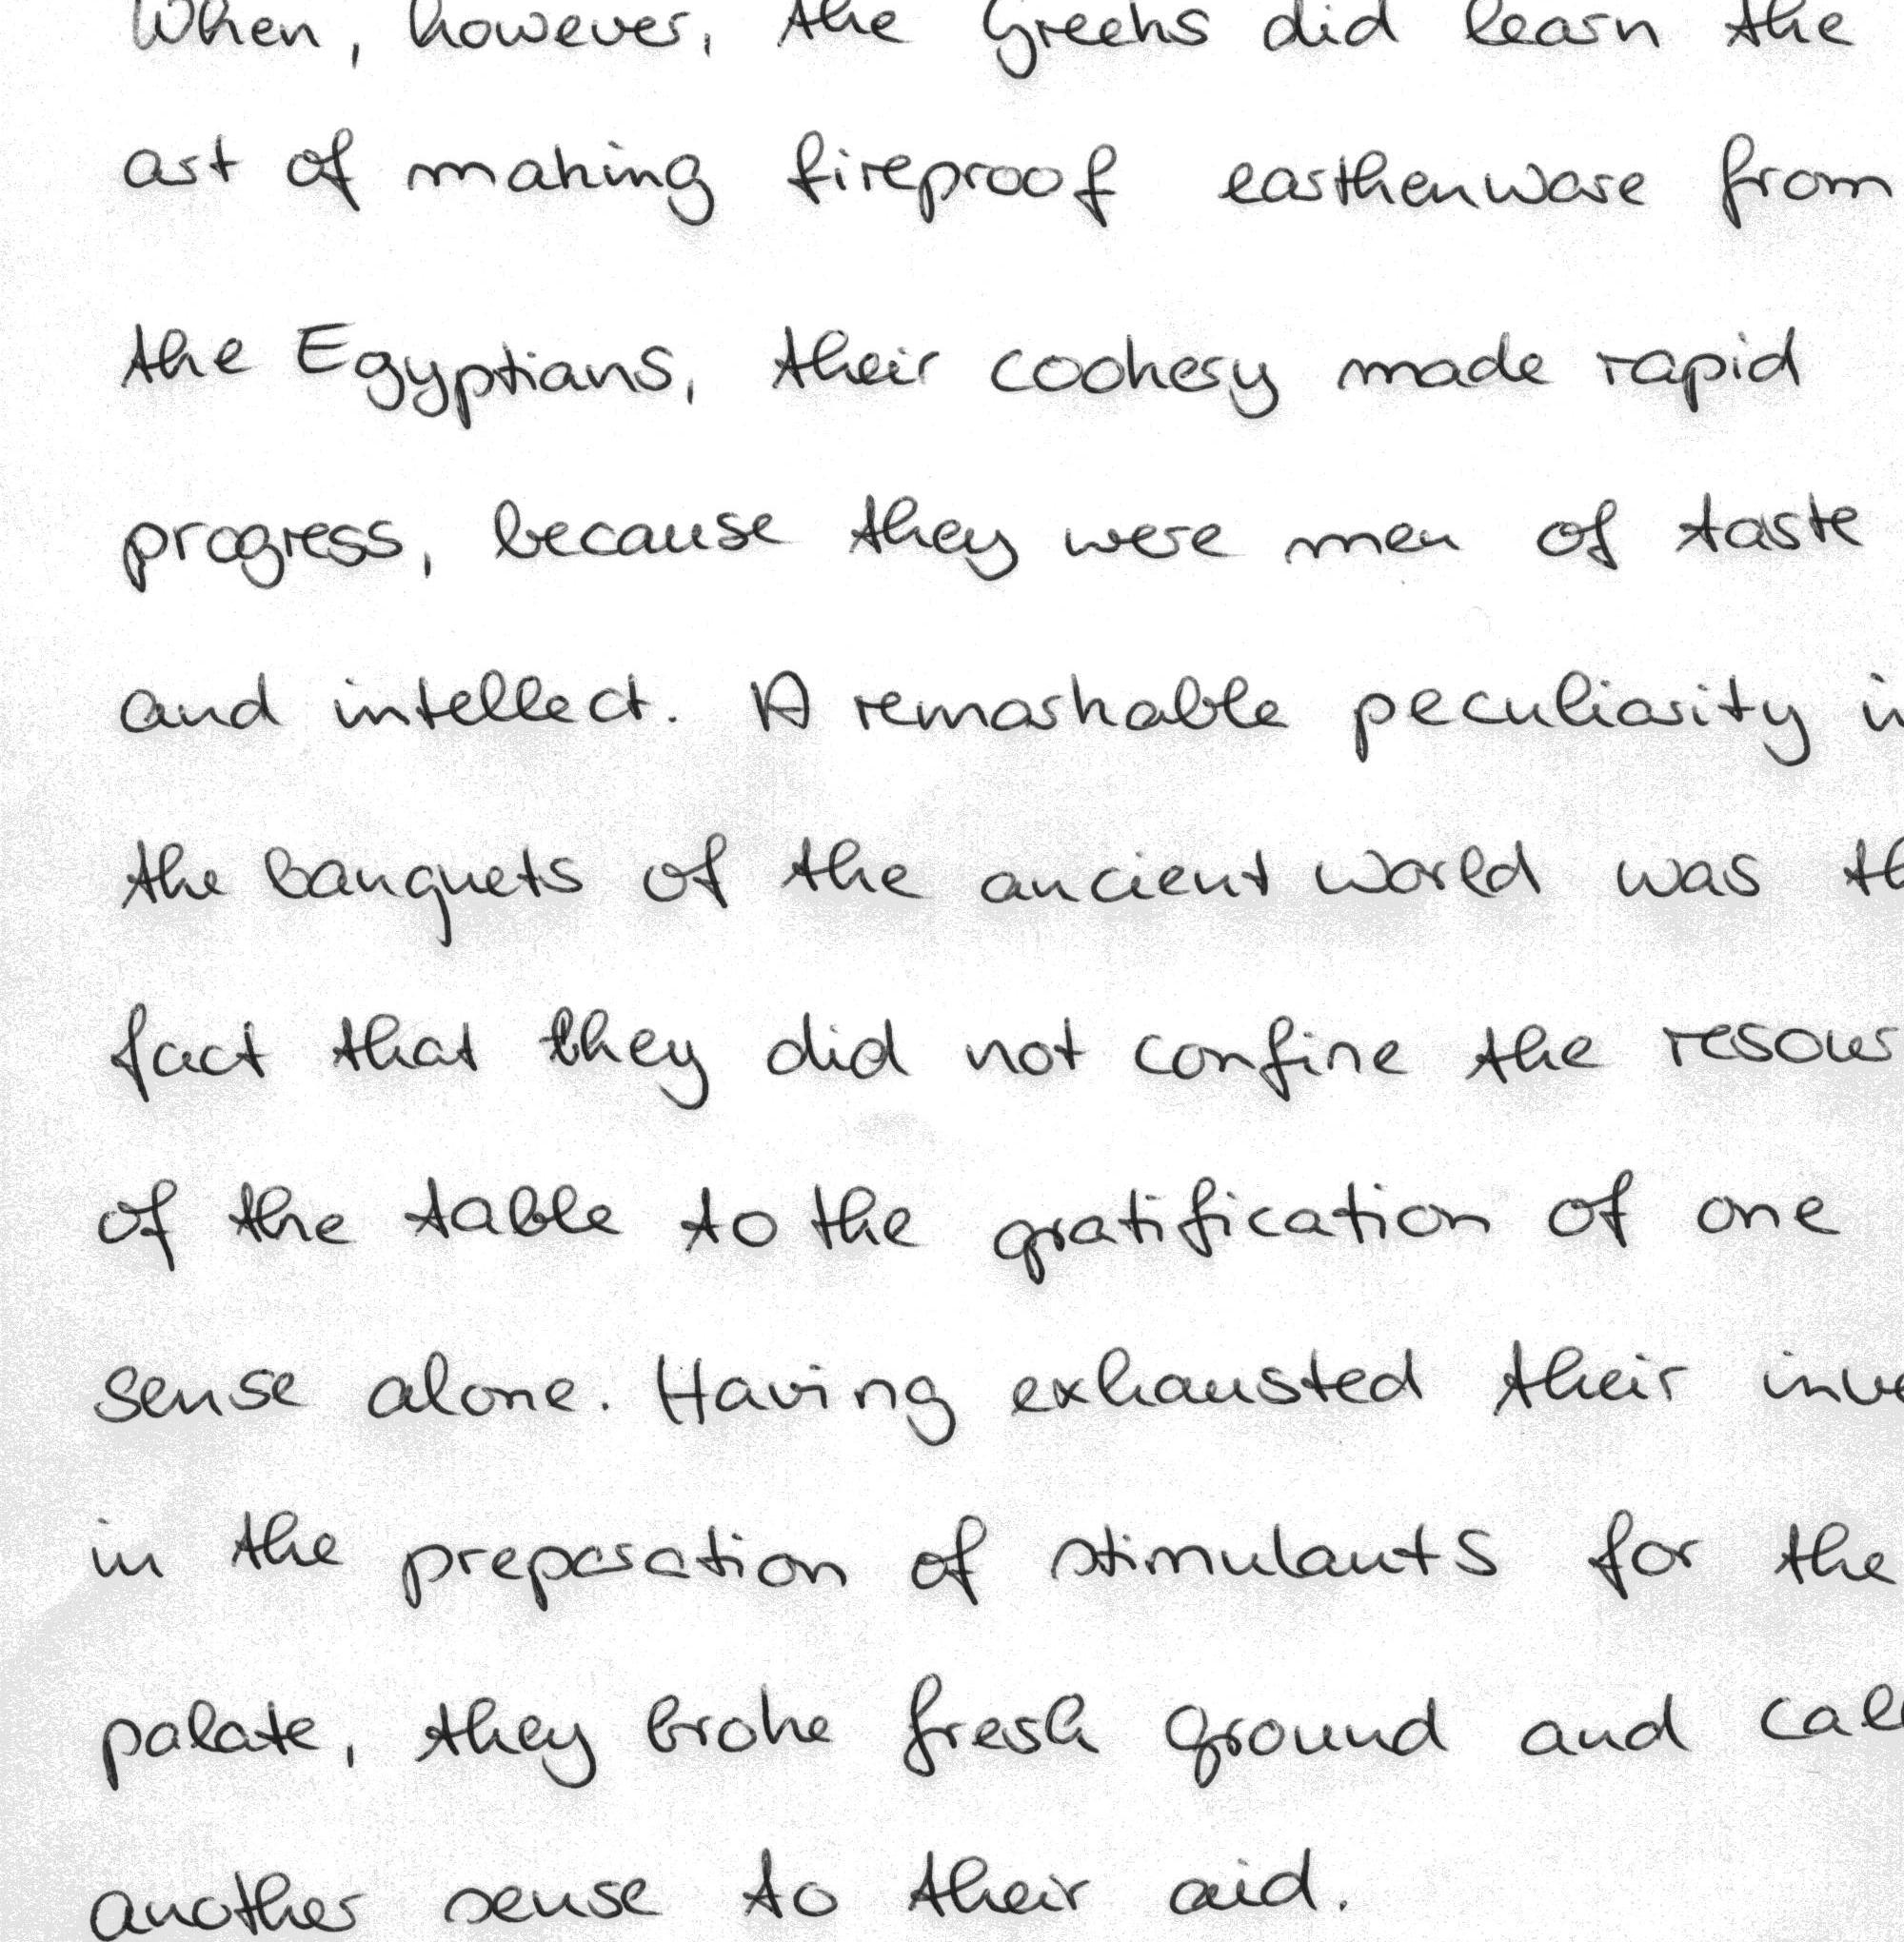 When, however, the Greeks did learn the
art of making fireproof earthenware from
the Egyptians, their cookery made rapid
progress, because they were men of taste
and intellect. A remarkable peculiarity
the banquets of the ancient world was
fact that they did not confine the
of the table to the gratification of one
sense alone. Having exhausted their
in the preparation of stimulants for the
palate, they broke fresh ground and
another sense to their aid.